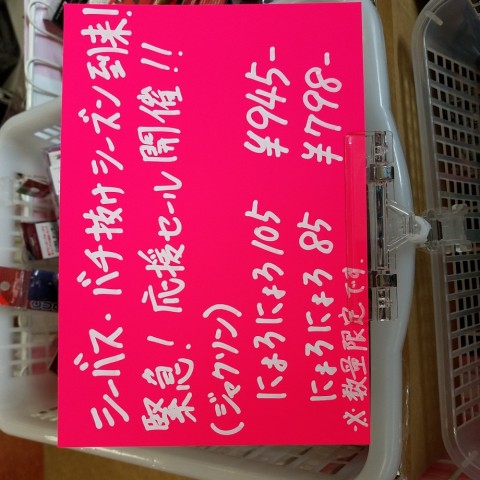 シーバス・バチ抜けシーズン到来!
緊急! 応援セール開催!!
(ジャクソン)
にょろにょろ105 ¥945-
にょろにょろ85 ¥798-
※数量限定です.